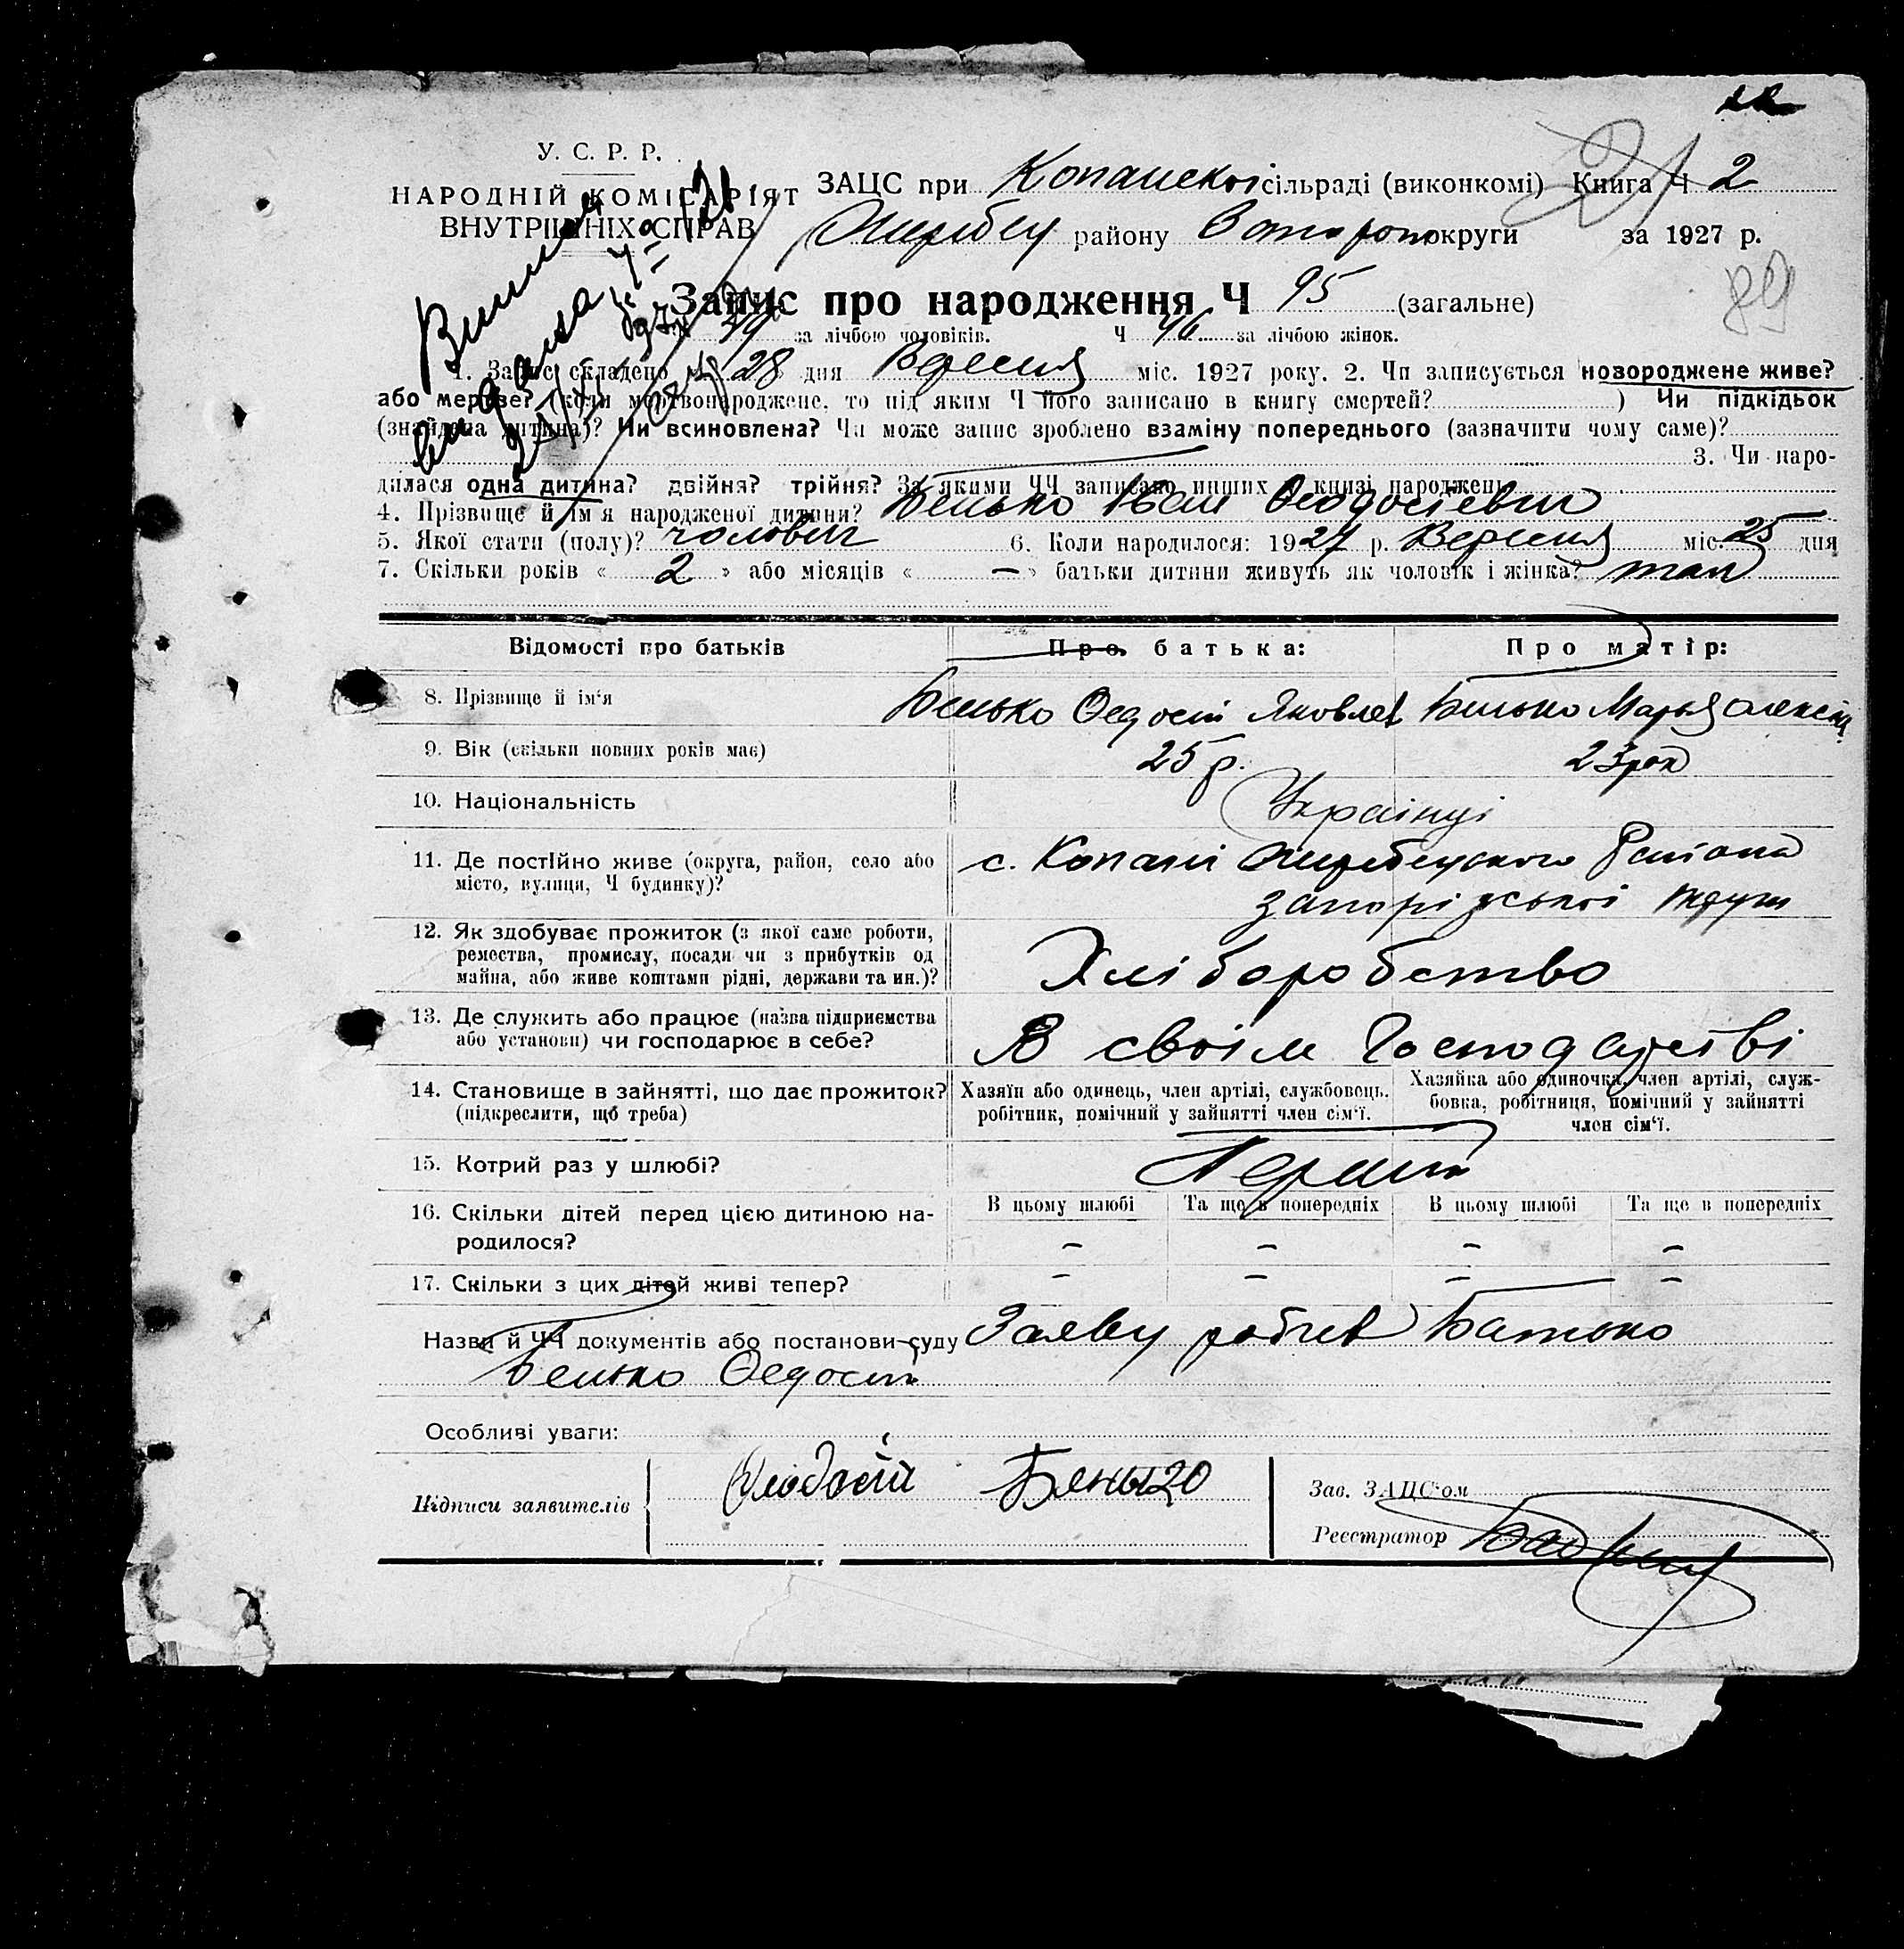 У. С. Р. Р.
НАРОДНІЙ КОМІСАРІЯТ
ВНУТРІШНІХ СПРАВ
ЗАЦС при Копанскої сільраді (виконкомі) Книга Ч 2
району округи за 1927 р.
89
Запис про народження Ч 95 (загальне)
за лічбою чоловіків. Ч 46 за лічбою жінок.
1. Запис складено 28 дня Вересня міс. 1927 року. 2. Чи записується новороджене живе?
або мертве? (коли мертвонароджене, то під яким Ч його записано в книгу смертей? ) Чи підкідьок
(знайдена дитина)? Чи всиновлена? Чи може запис зроблено взаміну попереднього (зазначити чому саме)?
3. Чи наро-
дилася одна дитина? двійня? трійня? За якими ЧЧ записано инших в книзі народжень
4. Прізвище й ім'я народженої дитини? Бенько Іван Феодосіевич
5. Якої стати (полу)? чоловіч 6. Коли народилося: 1927 р. Вересня міс. 25 дня
7. Скільки років « 2 » або місяців « — » батьки дитини живуть як чоловік і жінка? так
Відомости про батьків Про батька: Про матір:
8. Прізвище й ім'я Бенько Федосій Яковлев Бенько Марья Алексеев
9. Вік (скільки повних років має) 25 р. 23 рок
10. Національність Українці
11. Де постійно живе (округа, район, село або с. Копані Района
місто, вулиця, Ч будинку)? Запоріжської округи
12. Як здобуває прожиток (з якої саме роботи,
ремества, промислу, посади чи з прибутків од Хліборобство
майна, або живе коштами рідні, держави та ин.)?
13. Де служить або працює (назва підприємства
або установи) чи господарює в себе? В своім Господарстві
14. Становище в зайнятті, що дає прожиток? Хазяїн або одинець, член артілі, службовець, Хазяйка або одиночка, член артілі, служ-
(підкреслити, що треба) робітник, помічний у зайнятті член сім'ї. бовка, робітниця, помічний у зайнятті
член сім'ї.
15. Котрий раз у шлюбі? Перший
16. Скільки дітей перед цією дитиною на- В цьому шлюбі Та ще в попередніх В цьому шлюбі Та ще в попередніх
родилося? – – – –
17. Скільки з цих дітей живі тепер? – – – –
Назви й ЧЧ документів або постанови суду Заяву робив Батько
Бенько Федосій
Особливі уваги:
Підписи заявителів Феодосій Бенько Зав. ЗАЦС'ом
Реєстратор